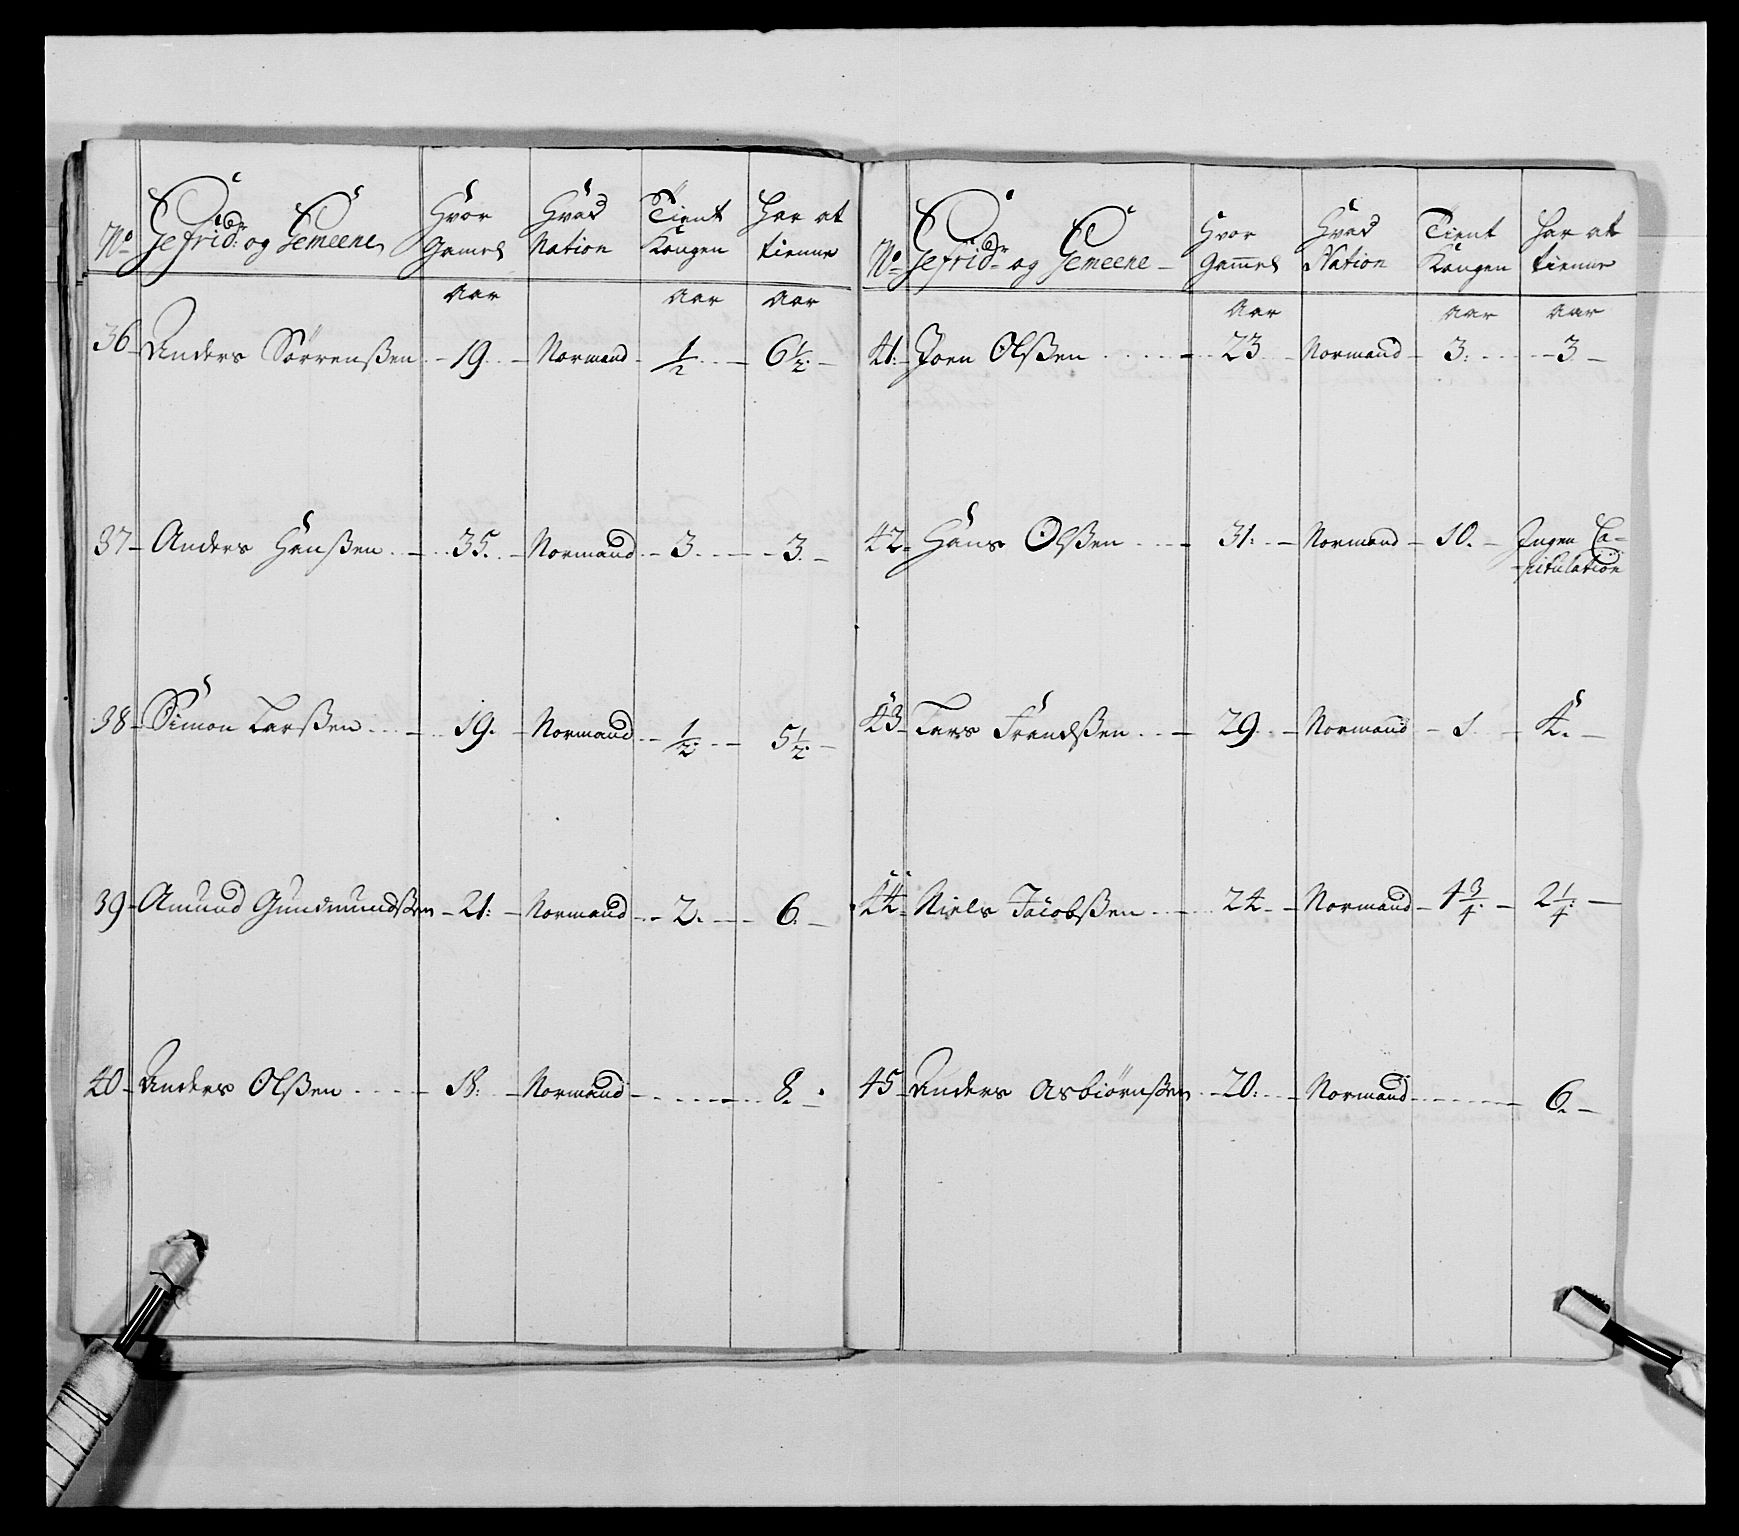 No Gefrid: og Gemeene Hvor Gamel Hvad Nation Tient Kongen Har at tienne
Aar Aar Aar
36 Anders Sörrenßen 19. Normand 1/2 6 1/2
37 Anders Hanßen 35. Normand 3. 3.
38 Simon Larßen 19. Normand 1/2 5 1/2
39 Amund Gundmundßen 21: Normand 2. 6.
40 Anders Olßen 18: Normand 8.
No Gefrid: og Gemeene Hvor Gam̅el Hvad Nation Tient Kongen Har at tienne
Aar Aar Aar
41: Joen Olßen 23 Normand 3: 3
42 Hans Olßen 31: Normand 10. Ingen Ca-
pitulation
43 Lars Frandßen 29 Normand 1 4.
44 Niels Jacobßen 24 Normand 1 3/4 2 1/4
45 Anders Asbiørnßen 20: Normand 6.